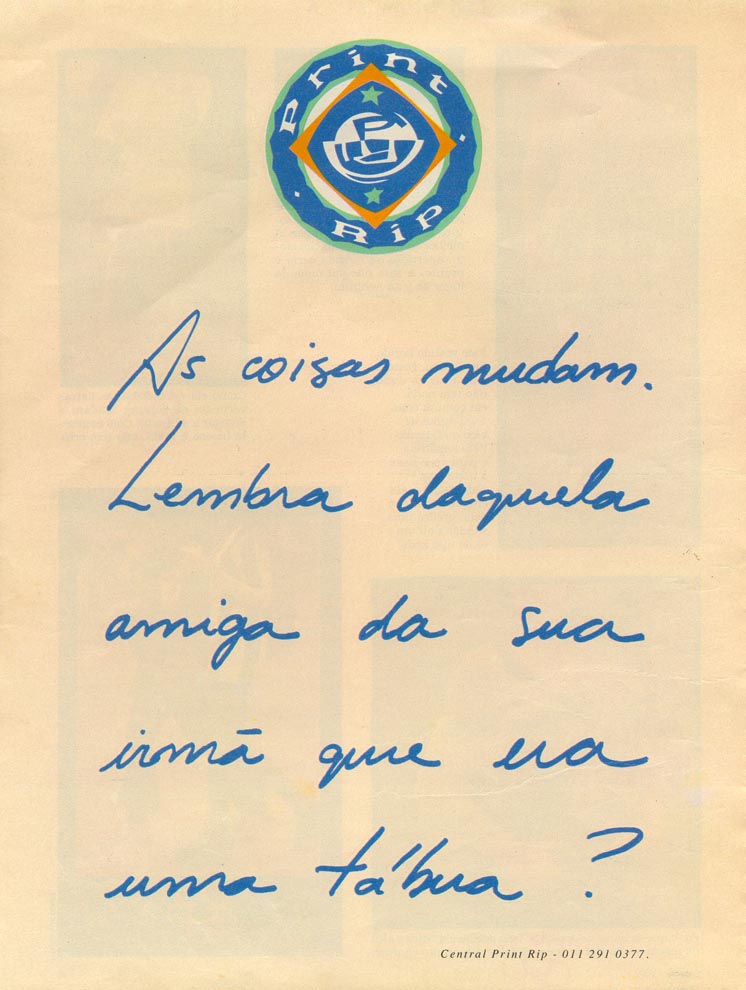 Print
Rip
As coisas mudam.
Lembra daquela
amiga da sua
irmã que era
uma tábua?
Central Print Rip - 011 291 0377.